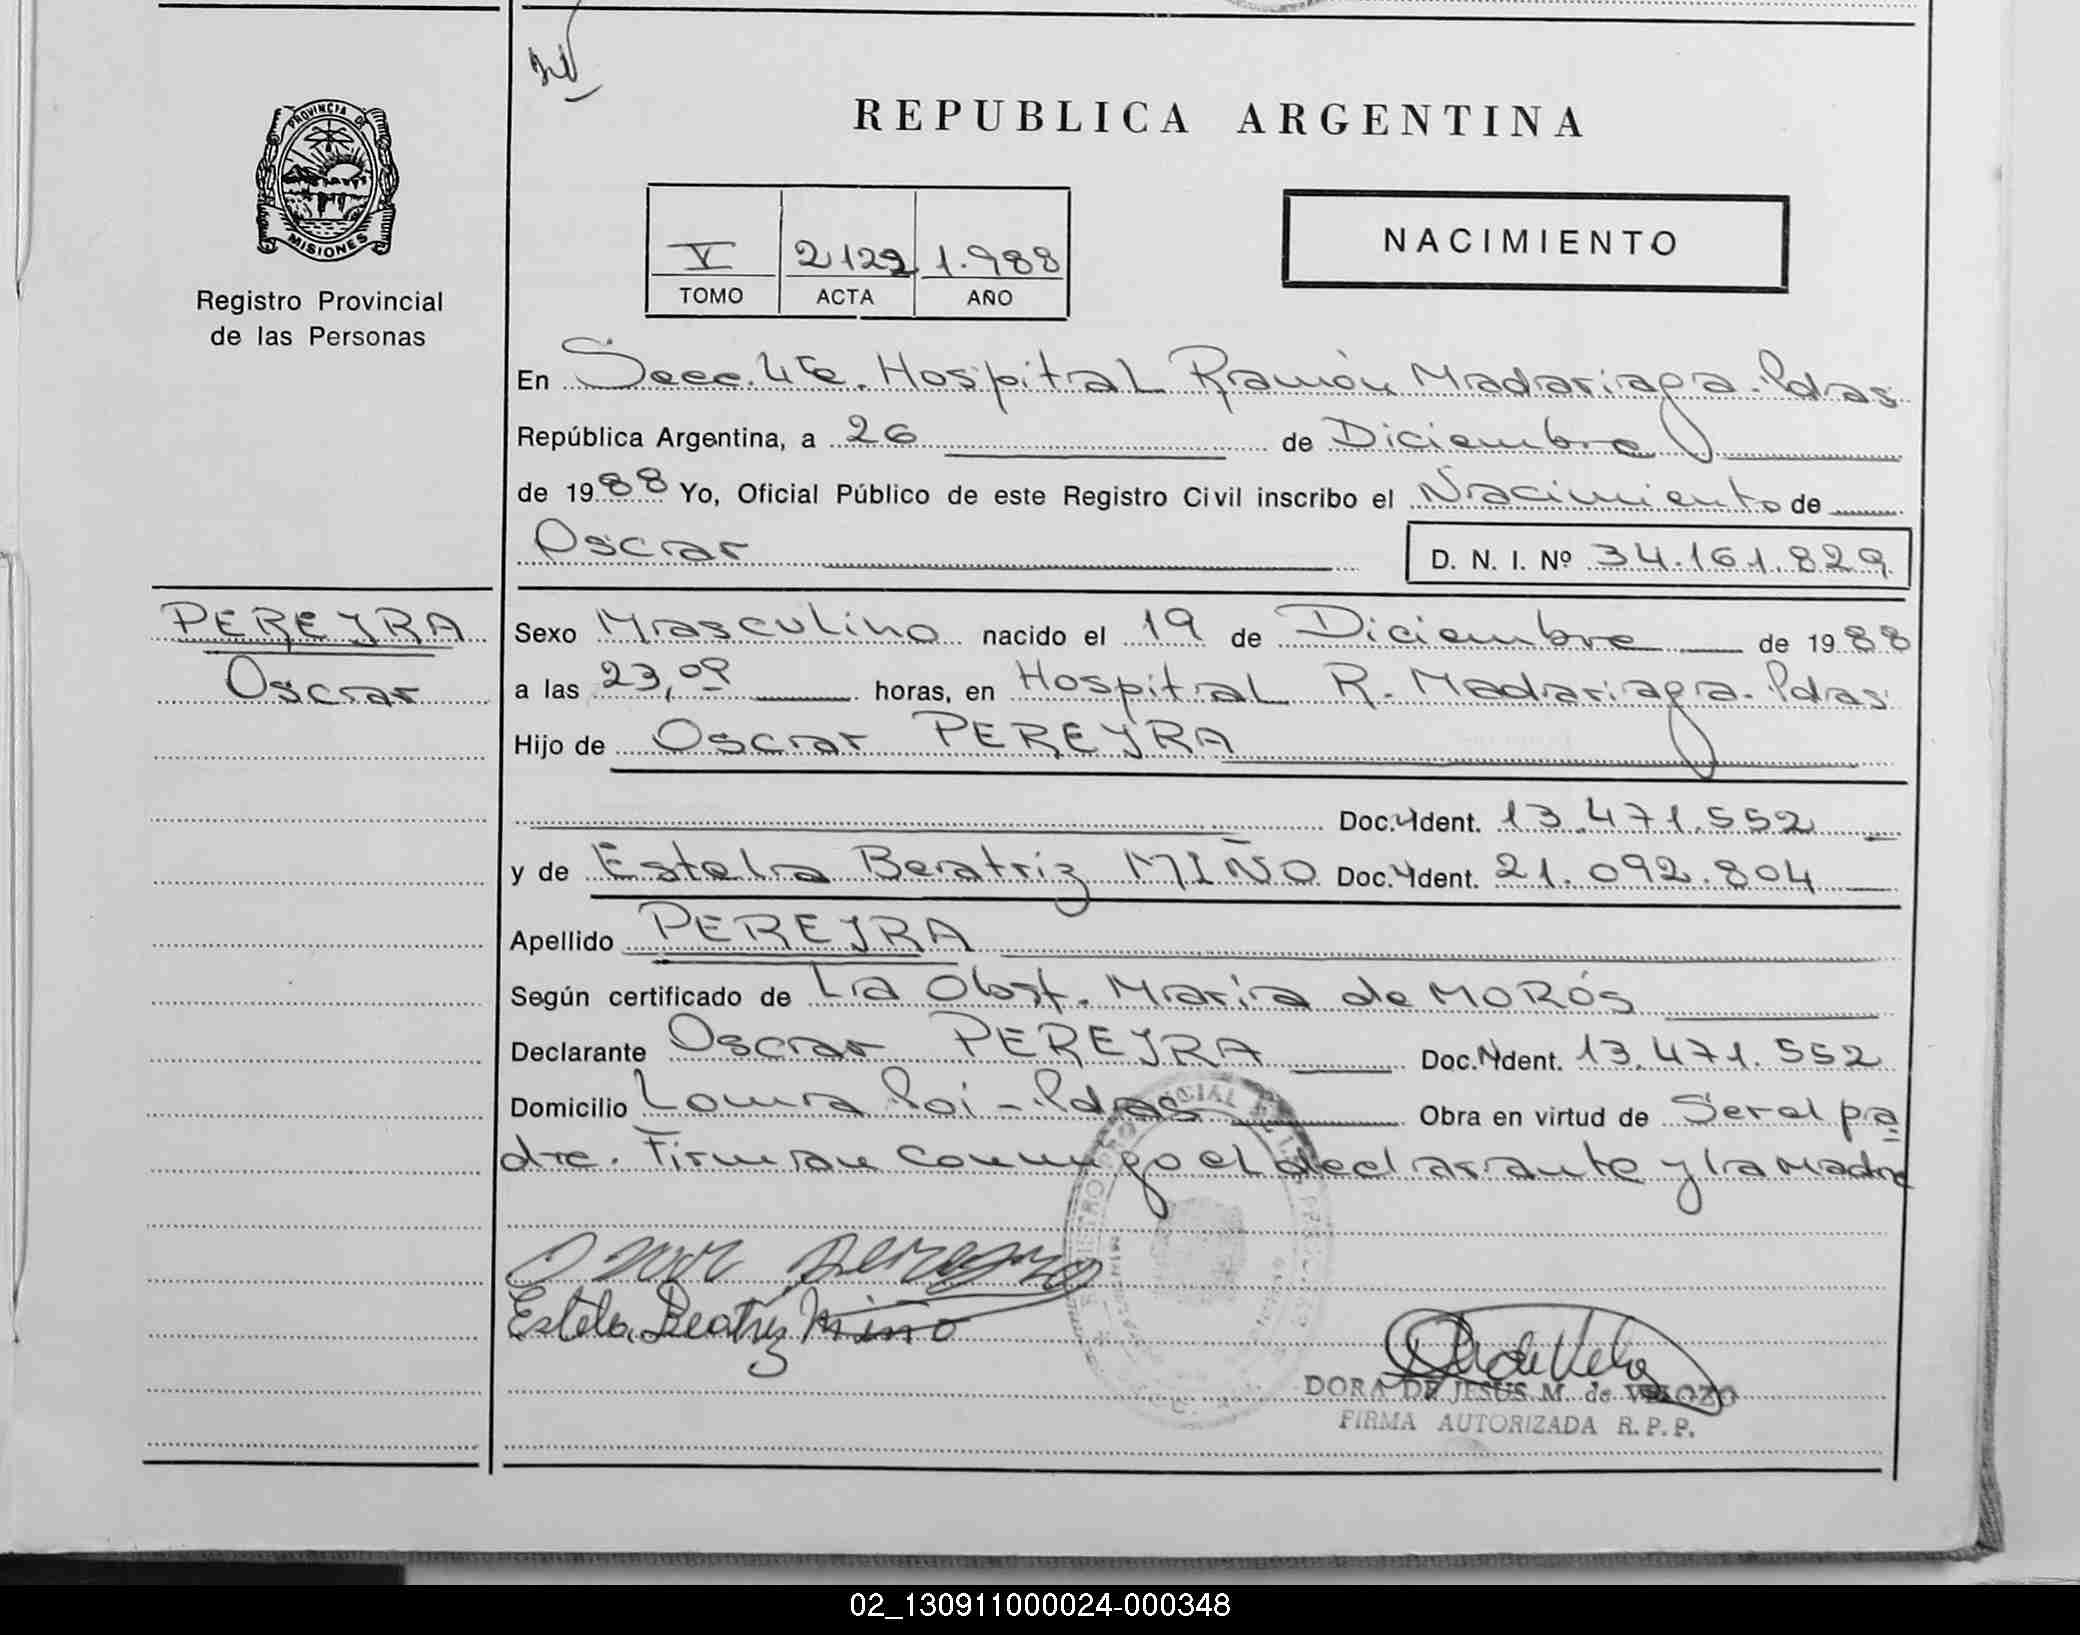 REPUBLICA ARGENTINA
PROVINCIA DE
MISIONES
Registro Provincial
de las Personas
V 2122 1.988
TOMO ACTA AÑO
NACIMIENTO
En Secc. 4ta. Hospital Ramón Madariaga. Pdas.
República Argentina, a 26 de Diciembre
de 1988 Yo, Oficial Público de este Registro Civil inscribo el Nacimiento de
Oscar D. N. I. Nº 34.161.829
PEREYRA
Oscar
Sexo Masculino nacido el 19 de Diciembre de 1988
a las 23,00 horas, en Hospital R. Madariaga. Pdas.
Hijo de Oscar PEREYRA
Doc. Ident. 13.471.552
y de Estela Beatriz MIÑO Doc. Ident. 21.092.804
Apellido PEREYRA
Según certificado de La Obst. María de MORÓS
Declarante Oscar PEREYRA Doc. Ident. 13.471.552
Domicilio Loma Poi - Pdas Obra en virtud de Ser el pa
dre. Firman conmigo el declarante y la Madre
Oscar Pereyra
Estela Beatriz Miño
DORA DE JESUS M. de VELOZO
FIRMA AUTORIZADA R. P. P.
02_130911000024-000348